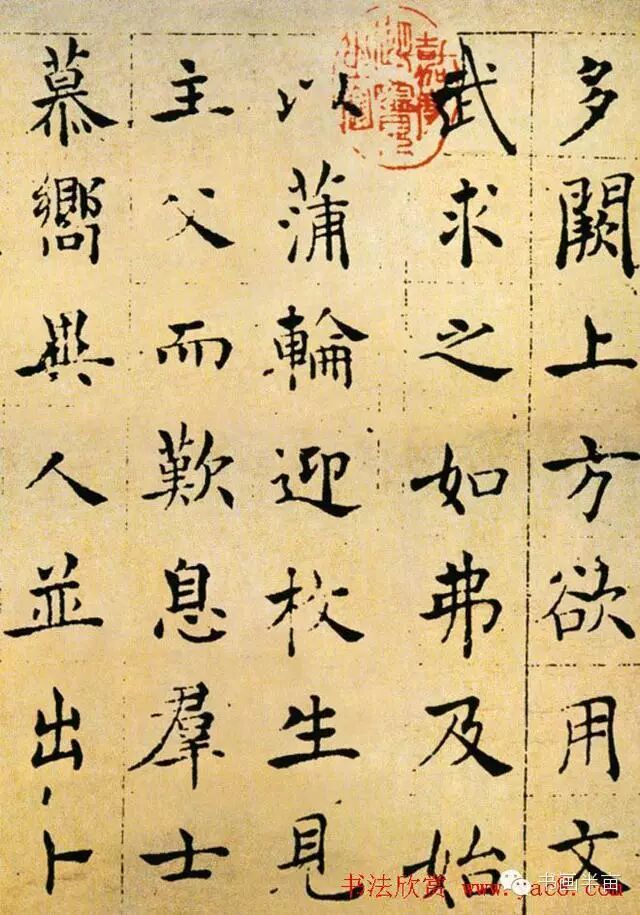 多闕上方欲用文
武求之如弗及始
以蒲輪迎枚生見
主父而歎息羣士
慕嚮異人並出卜
书法欣赏
书画半亩